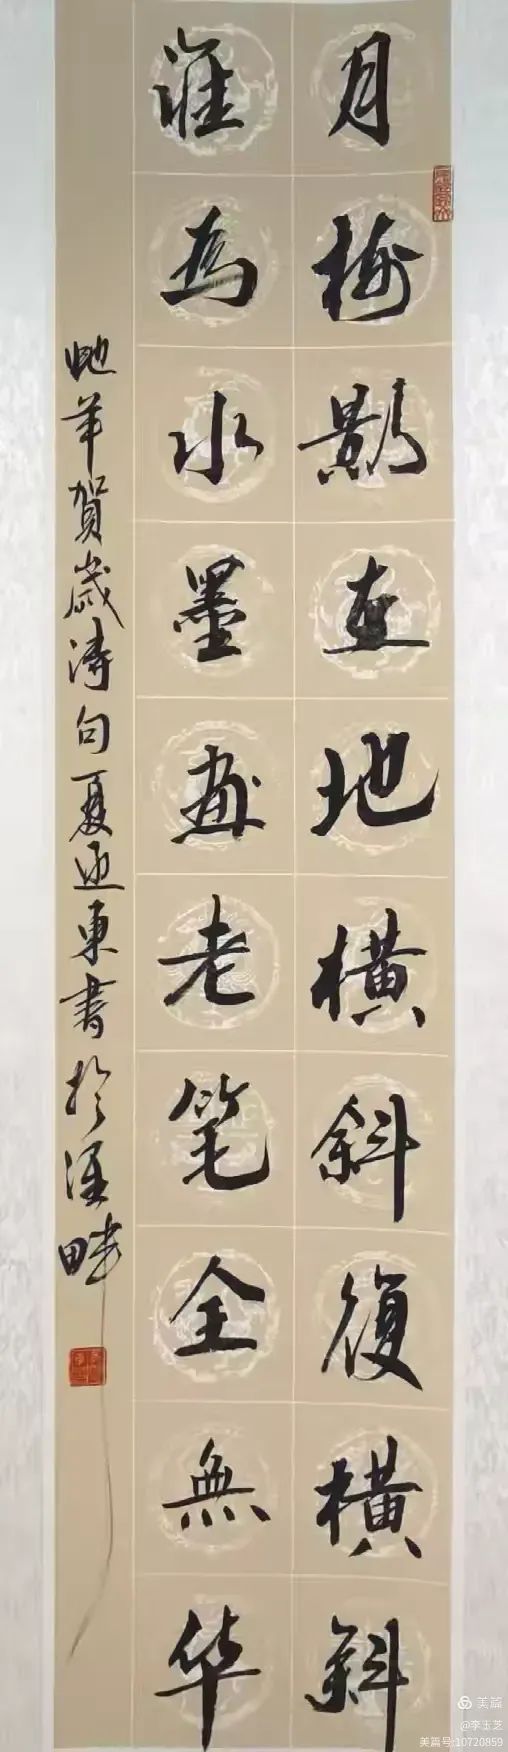 月梅影在地橫斜復橫斜
誰為水墨畫老笔全無华
虵年賀歲詩句夏迎東書於畔
美篇
@李玉芝
美篇号:10720859